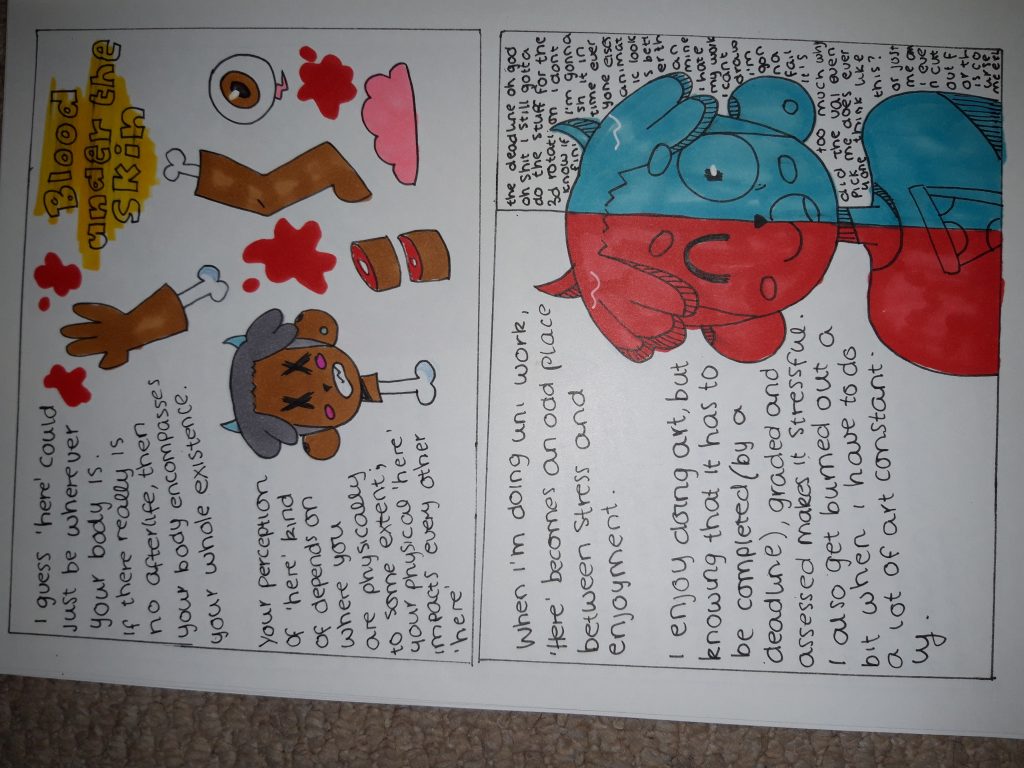 Blood
under the
skin
I guess 'here' could
just be wherever
your body is.
If there really is
no afterlife, then
your body encompasses
your whole existence.
Your perception
of 'here' kind
of depends on
where you
are physically
to some extent;
your physical 'here'
impacts every other
'here'
When I'm doing uni work,
'Here' becomes an odd place
between stress and
enjoyment.
I enjoy doing art, but
knowing that it has to
be completed (by a
deadline), graded and
assessed makes it stressful.
I also get burned out a
bit when I have to do
a lot of art constant-
ly.
the deadline oh god
oh shit I still gotta
do the stuff for the
3d rotation I dont
know if I'm gonna
finish it in
time ever
yone elses
animat
ic look
s bett
er th
an
mine
I hate
my work
I cant
draw
I'm
gon
na
fail
it's
too much why
did the val even
pick me does ever
yone think like
this?
or just
me am
I eve
n cut
out f
or th
is co
urse